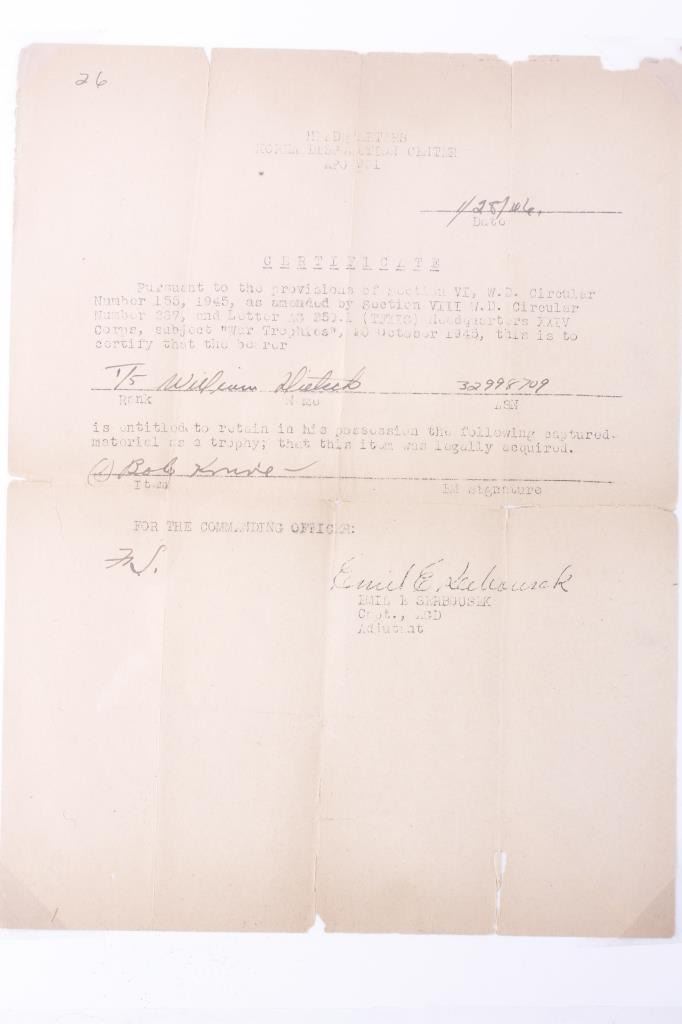 26
HEADQUARTERS
KOREA DISPOSITION CENTER
APO
1/28/46.
Date
CERTIFICATE
Pursuant to the provisions of Section VI, W.D. Circular
Number 155, 1945, as amended by Section VIII W.D. Circular
Number 267, and Letter AG 250.1 (TFXIG) Headquarters XXIV
Corps, subject "War Trophies", 10 October 1945, this is to
certify that the bearer
T/5 William 32998709
Rank Name ASN
is entitled to retain in his possession the following captured
material as a trophy; that this item was legally acquired.
(1)
Item EM Signature
FOR THE COMMANDING OFFICER:
Emil E Serbousek
EMIL E SERBOUSEK
Capt., AGD
Adjutant